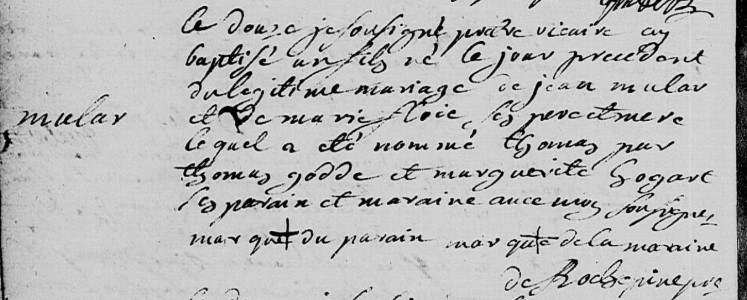 le douze je sousigné prêtre vicaire ay
baptisé un fils né le jour precedent
du legitime mariage de jean mular
mular
et de marie floie, ses pere et mere
lequel a eté nommé thomas par
thomas godde et marguerite hogart
ses parain et maraine avec moy sousigne,
marque du parain marque de la maraine
de Rochepine pre